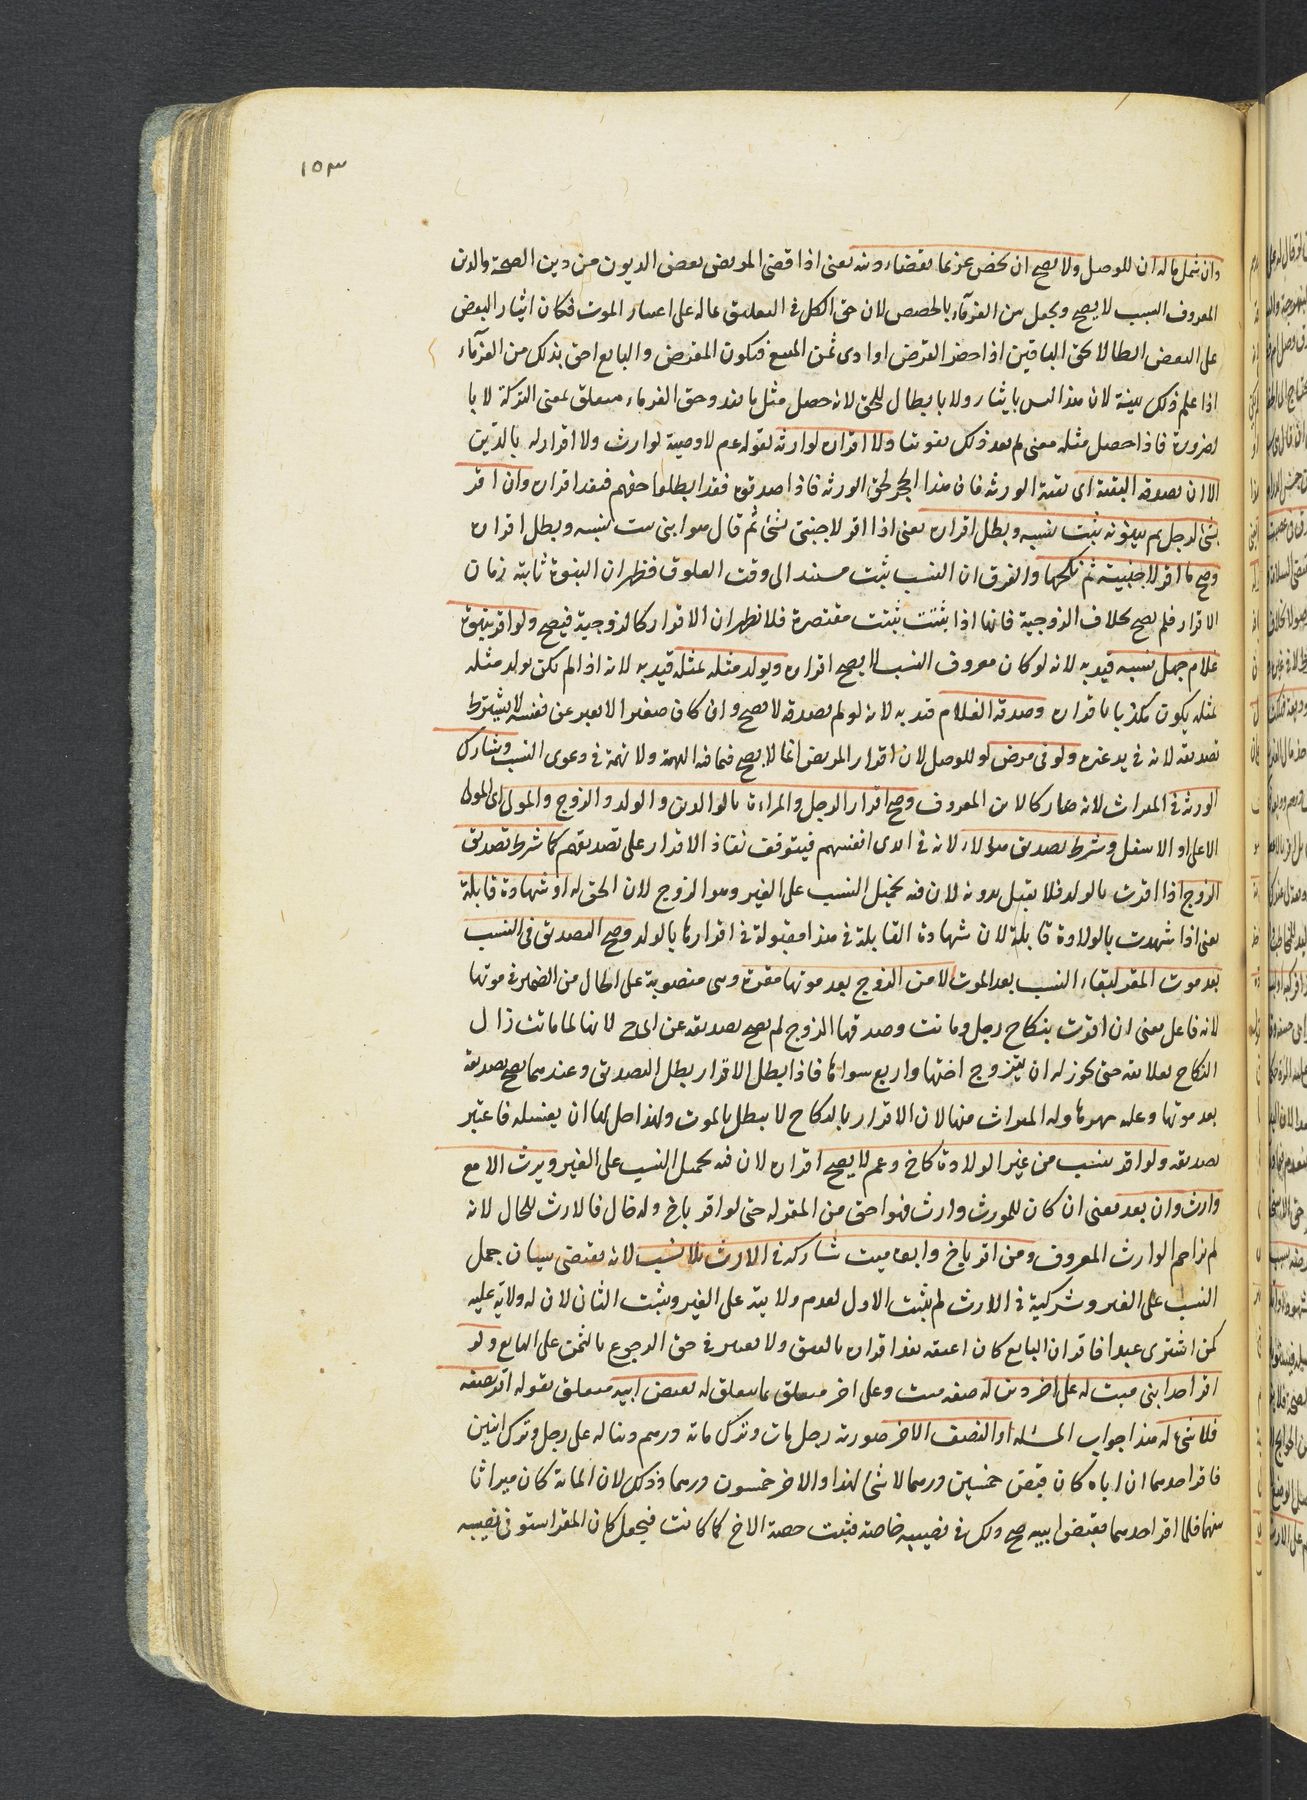 ١٥٣
وان شمل ماله ان للوصل ولا يصح ان يخص غريما بقضاء دينه يعنى اذا قضى المريض بعض الديون من دين الصحة والدين
المعروف السبب لا يصح ويجعل بين الغرماء بالحصص لان حق الكل فى التعلق بماله على اعتبار الموت فكان ايثار البعض
على البعض ابطالا لحق الباقين اذا حضر القرض او ادى ثمن المبيع فيكون المقرض والبايع احق بذلك من الغرماء
اذا علم ذلك ببينة لان هذا ليس بايثار ولا بابطال للحق لانه حصل مثل ما نقد وحق الغرماء متعلق بمعنى التركة لا با
لصورة فاذا حصل مثله معنى لم يعد ذلك تفويتا ولا اقراره لوارثه لقوله عم لا وصية لوارث ولا اقرار له بالدين
الا ان يصدقه البقية اى بقية الورثة فان هذا الحجر لحق الورثة فاذا صدقوه فقد ابطلوا حقهم فنفد اقراره وان اقر
بشئ لرجل ثم ببنوته ثبت نسبه وبطل اقراره يعنى اذا اقر لاجنبى بشئ ثم قال هو ابنى ثبت نسبه وبطل اقراره
وصح ما اقر لاجنبية ثم نكحها والفرق ان النسب يثبت مستندا الى وقت العلوق فظهر ان البنوة ثابتة زمان
الاقرار فلم يصح بخلاف الزوجية فانها اذا ثبتت ثبتت مقتصرة فلا يظهر ان الاقرار كالزوجية فيصح ولو اقر ببنوة
غلام جهل نسبه قيد به لانه لو كان معروف النسب لا يصح اقراره ويولد مثله لمثله قيد به لانه اذا لم يكن يولد مثله
لمثله يكون مكذبا باقراره وصدقه الغلام قيد به لانه لو لم يصدقه لا يصح وان كان صغيرا لا يعبر عن نفسه لا يشترط
تصديقه لانه فى يد غيره ولو فى مرض لو للوصل لان اقرار المريض انما لا يصح فيما فيه التهمة ولا تهمة فى دعوى النسب وشارك
الورثة فى الميراث لانه صار كالابن المعروف وصح اقرار الرجل والمراة بالوالدين والولد والزوج والمولى اى المولى
الاعلى او الاسفل وشرط تصديق هؤلاء لانه فى ايدى انفسهم فيتوقف نفاذ الاقرار على تصديقهم كما شرط تصديق
الزوج اذا اقرت بالولد فلا يقبل بدونه لان فيه تحميل النسب على الغير وهو الزوج لان الحق له او شهادة قابلة
يعنى اذا شهدت بالولادة قابلة لان شهادة القابلة فى هذا مقبولة فى اقرارها بالولد وصح التصديق فى النسب
بعد موت المقر لبقاء النسب بعد الموت لا من الزوج بعد موتها مقرة وهى منصوبة على الحال من الضمير فى موتها
لانه فاعل يعنى ان اقرت بنكاح رجل وماتت وصدقها الزوج لم يصح تصديقه عن ابى ح لانها لما ماتت زال
النكاح بعلائقه حتى يجوز له ان يتزوج اختها واربع سواها فاذا بطل الاقرار بطل التصديق وعندهما يصح تصديقه
بعد موتها وعليه مهرها وله الميراث منها لان الاقرار بالنكاح لا يبطل بالموت ولهذا حل لها ان يغسله فاعتبر
تصديقه ولو اقر بنسب من غير الولادة كاخ وعم لا يصح اقراره لان فيه تحميل النسب على الغير ويرث الا مع
وارث وان بعد يعنى ان كان للمورث وارث فهو احق من المقر له حتى لو اقر باخ وله خال فالارث للخال لانه
لم يزاحم الوارث المعروف ومن اقر باخ وابوه ميت شاركه فى الارث بلا نسب لانه يقتضى بيان حمل
النسب على الغير وشركته فى الارث لم يثبت الاول لعدم ولايته على الغير ويثبت الثانى لان له ولاية عليه
كمن اشترى عبدا فاقر ان البايع كان اعتقه نفد اقراره بالعتق ولا يعتبر فى حق الرجوع بالثمن على البايع ولو
اقر احد ابنى ميت له على اخر دين له صفة ميت وعلى اخر متعلق بما يتعلق له بقبض ابيه متعلق بقوله اقر نصفه
فلا شئ له هذا جواب المسئله او النصف الاخر صورته رجل مات وترك مائة درهم دينا له على رجل وترك ابنين
فاقر احدهما ان اباه كان قبض خمسين درهما لا شئ لهذا والاخر خمسون درهما وذلك لان المائة كان ميراثا
بينهما فلما اقر احدهما بقبض ابيه صح ذلك فى نصيبه خاصة فبقيت حصة الاخ كما كانت فيجعل كان المقر استوفى نصيبه